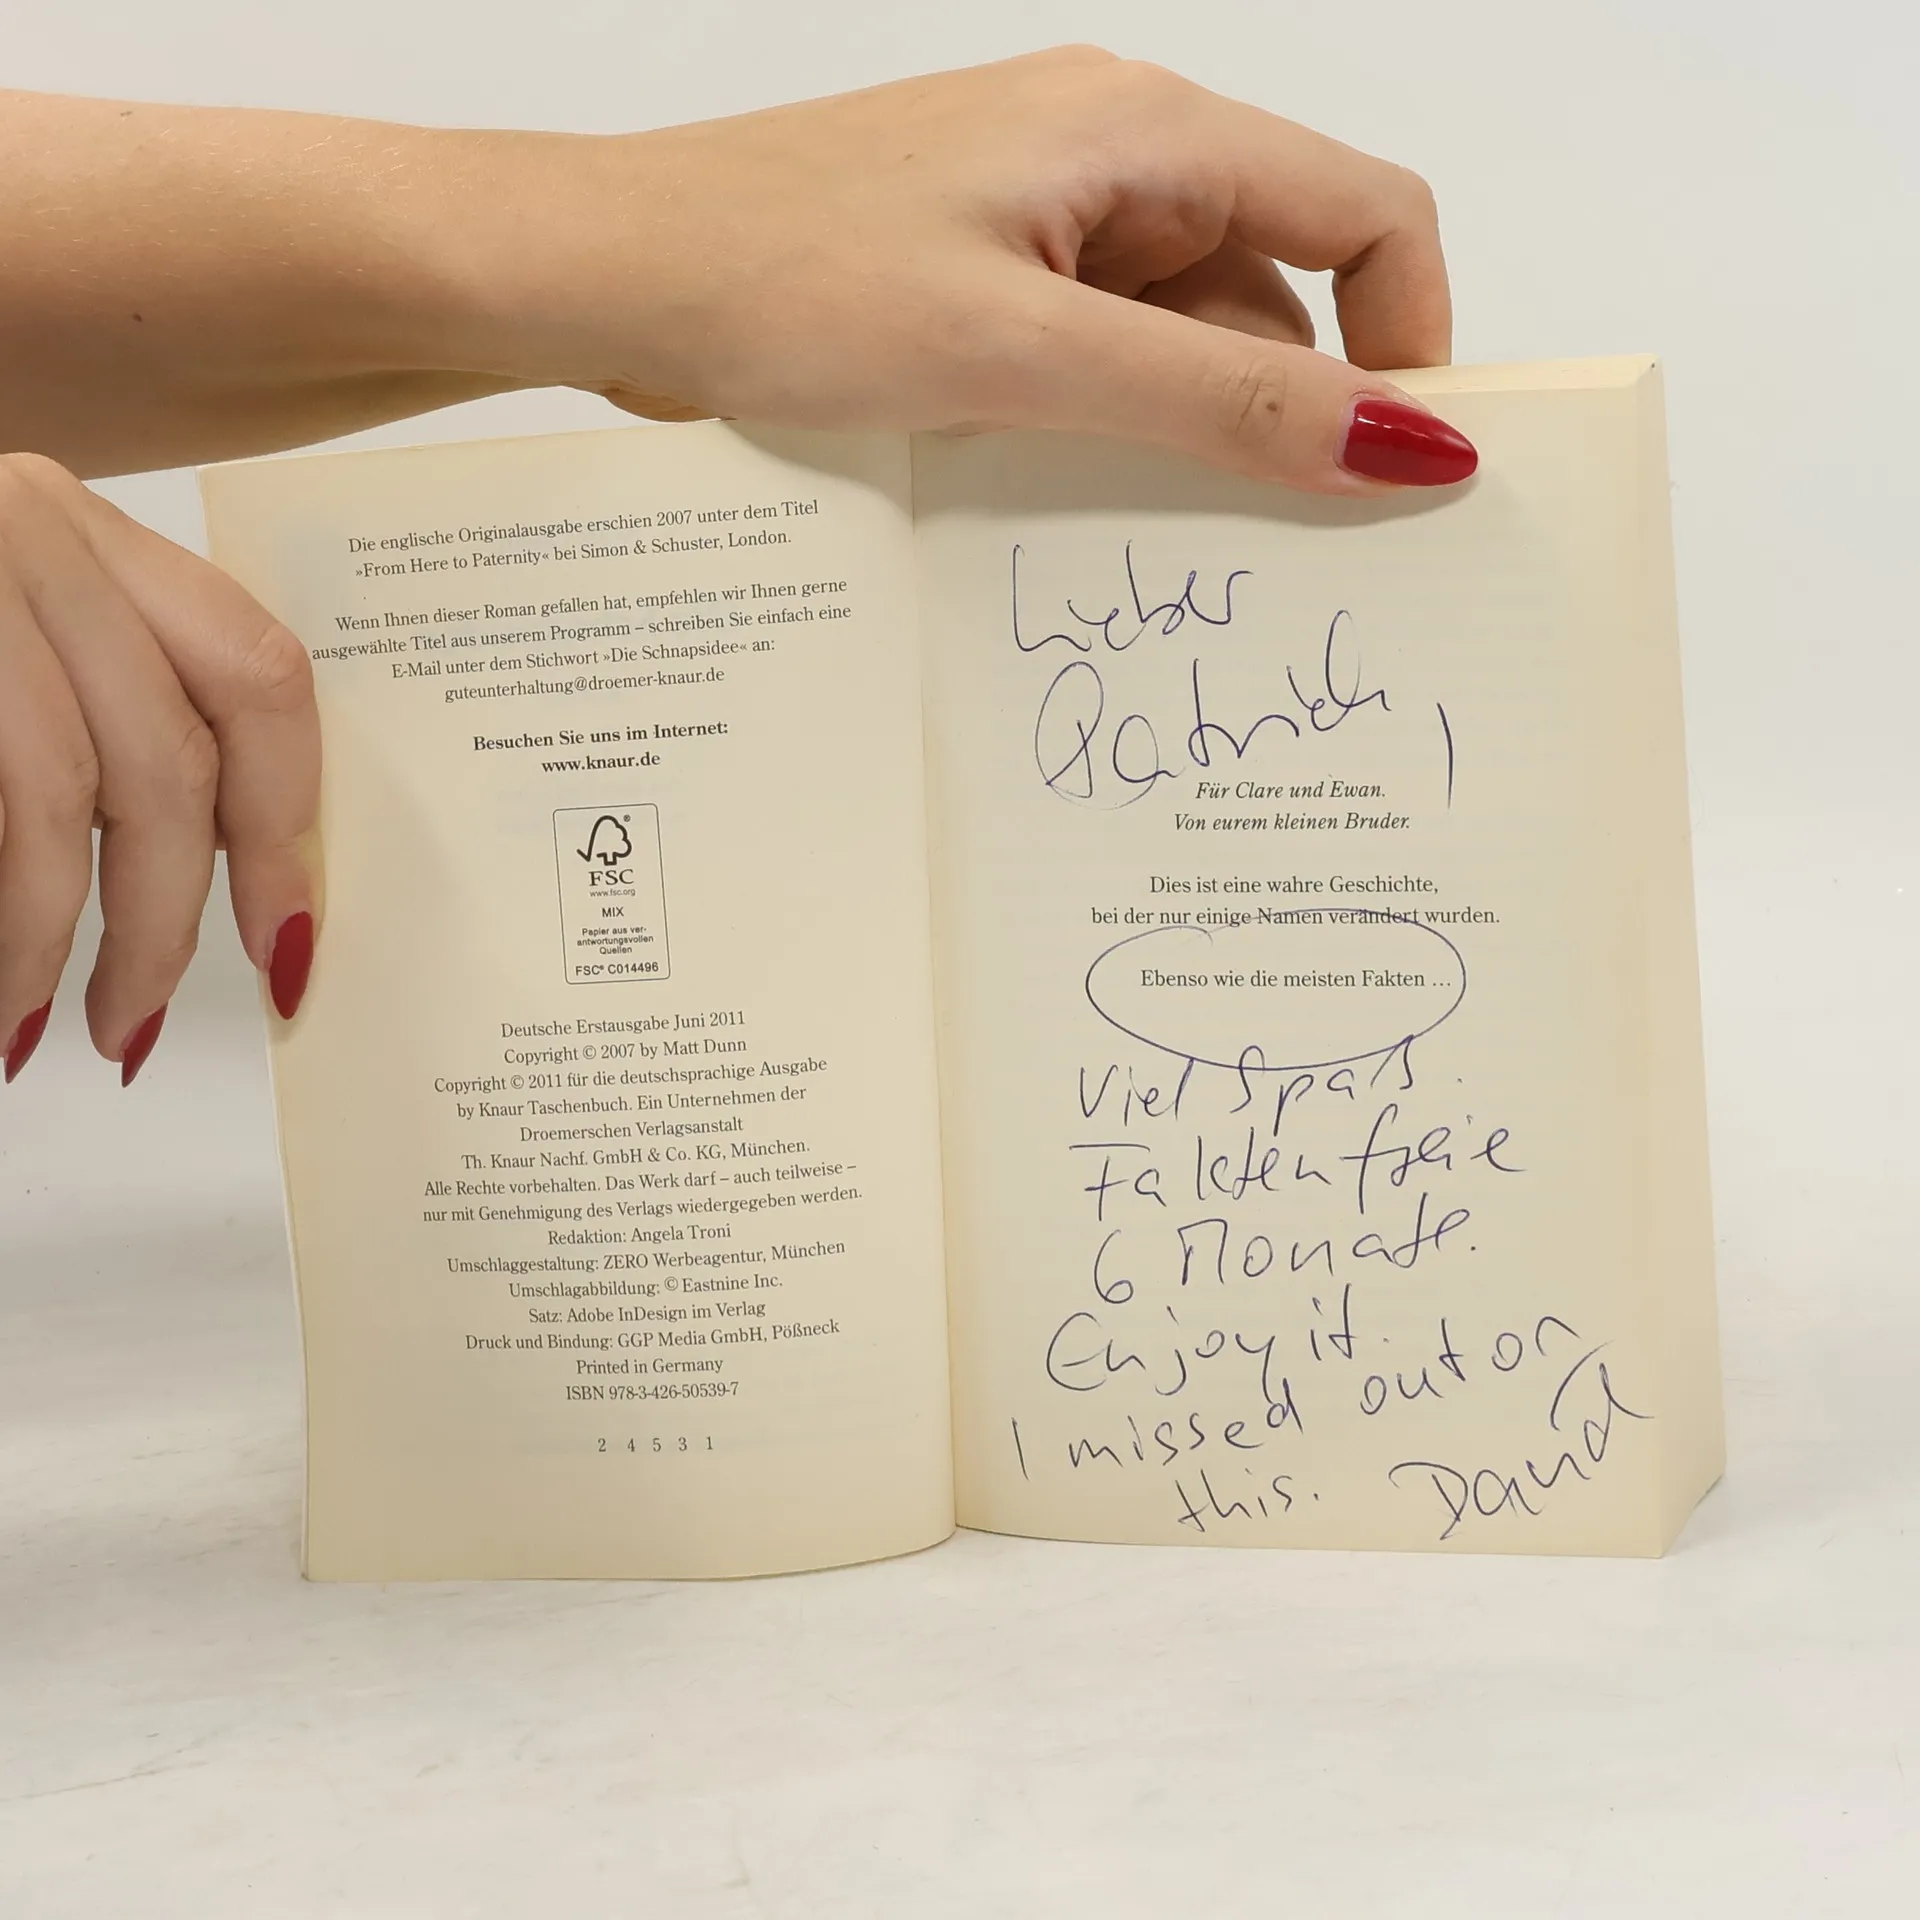 Die englische Originalausgabe erschien 2007 unter dem Titel
»From Here to Paternity« bei Simon & Schuster, London.
Wenn Ihnen dieser Roman gefallen hat, empfehlen wir Ihnen gerne
ausgewählte Titel aus unserem Programm – schreiben Sie einfach eine
E-Mail unter dem Stichwort »Die Schnapsidee« an:
guteunterhaltung@droemer-knaur.de
Besuchen Sie uns im Internet:
www.knaur.de
FSC®
www.fsc.org
MIX
Papier aus ver-
antwortungsvollen
Quellen
FSC® C014496
Deutsche Erstausgabe Juni 2011
Copyright © 2007 by Matt Dunn
Copyright © 2011 für die deutschsprachige Ausgabe
by Knaur Taschenbuch. Ein Unternehmen der
Droemerschen Verlagsanstalt
Th. Knaur Nachf. GmbH & Co. KG, München.
Alle Rechte vorbehalten. Das Werk darf – auch teilweise –
nur mit Genehmigung des Verlags wiedergegeben werden.
Redaktion: Angela Troni
Umschlaggestaltung: ZERO Werbeagentur, München
Umschlagabbildung: © Eastnine Inc.
Satz: Adobe InDesign im Verlag
Druck und Bindung: GGP Media GmbH, Pößneck
Printed in Germany
ISBN 978-3-426-50539-7
2 4 5 3 1
Lieber
Patrick,
Für Clare und Ewan.
Von eurem kleinen Bruder.
Dies ist eine wahre Geschichte,
bei der nur einige Namen verändert wurden.
Ebenso wie die meisten Fakten ...
Viel Spaß.
Faktenfreie
6 Monate.
Enjoy it.
I missed out on
this. David